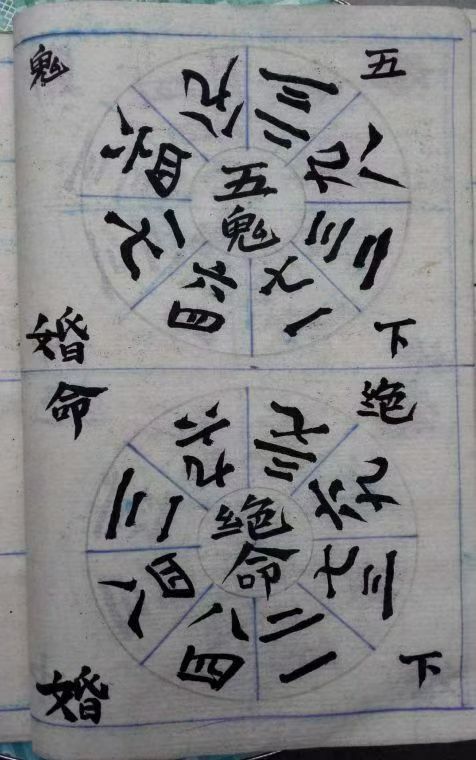 五鬼
下婚
五鬼
三二
八九
二三
一七
四六
七一
六四
九八
绝命
下婚
绝命
七三
九六
三七
一二
四八
八四
二一
六九